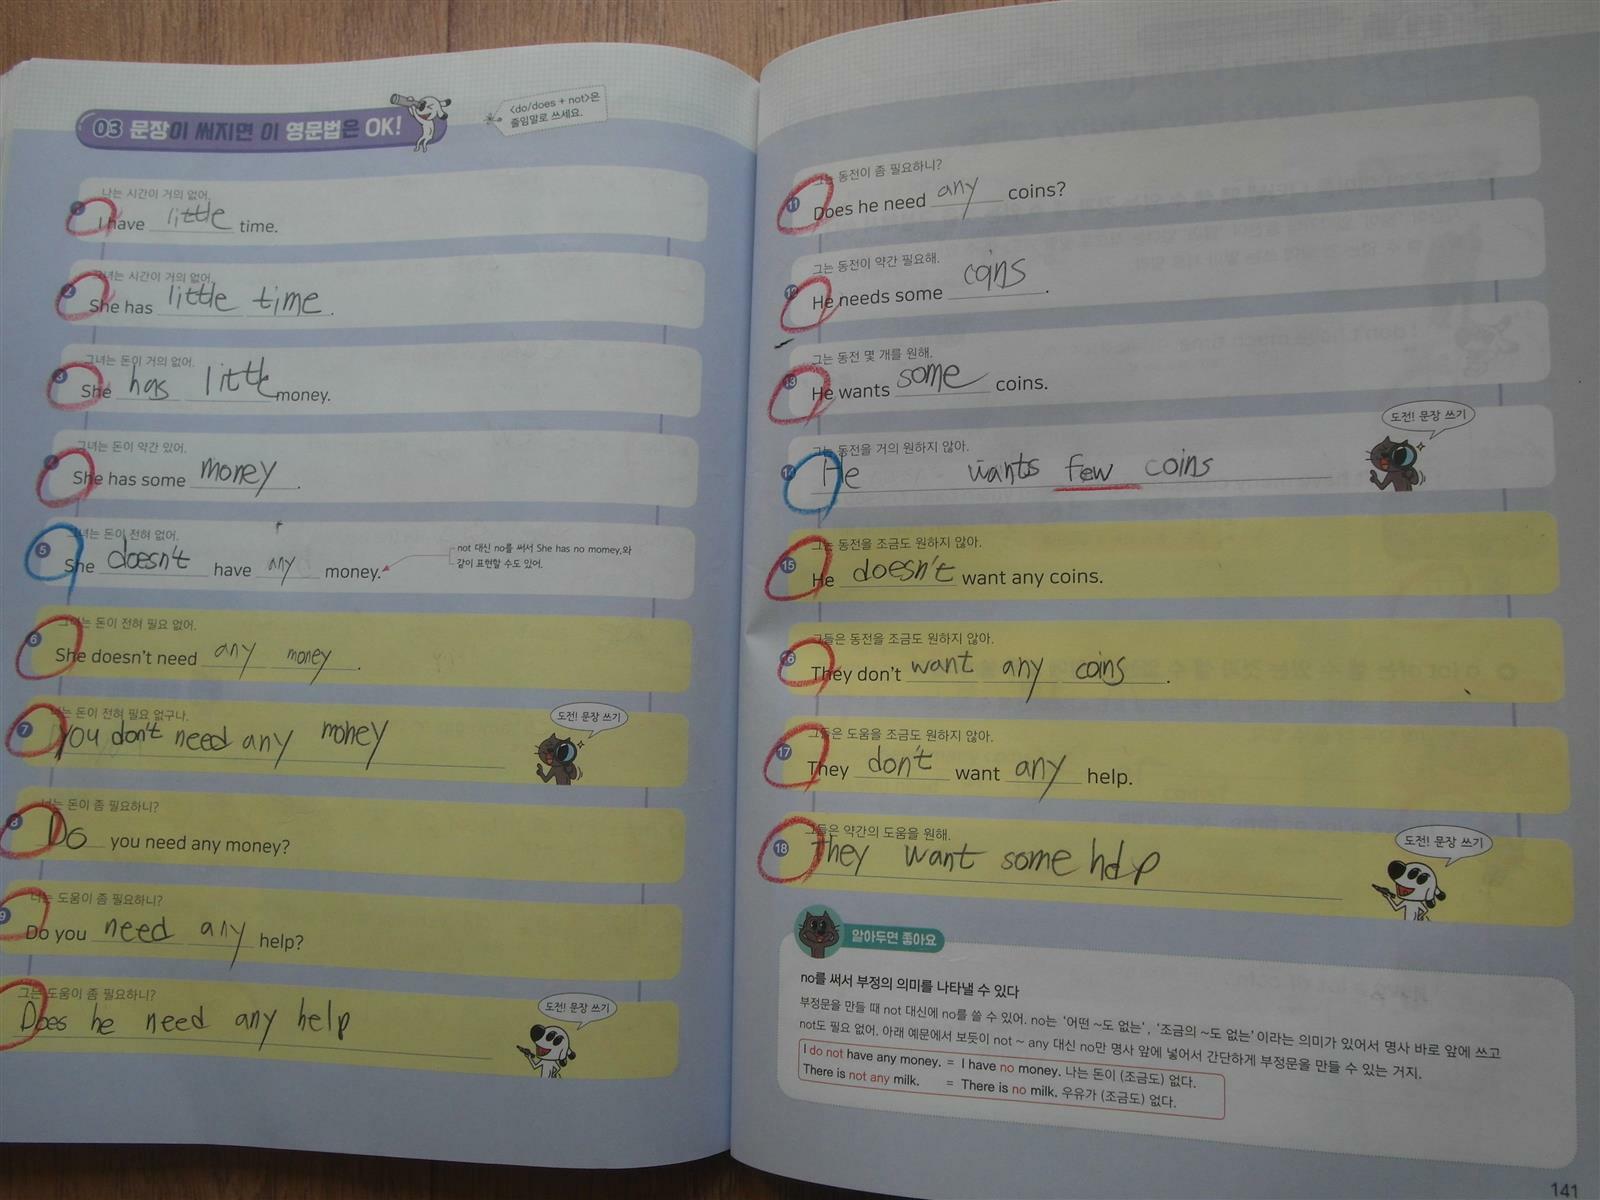 03 문장이 써지면 이 영문법은 OK!
<do/does + not>은
줄임말로 쓰세요.
나는 시간이 거의 없어.
I have little time.
그녀는 시간이 거의 없어.
2 She has little time.
그녀는 돈이 거의 없어.
3 She has little money.
그녀는 돈이 약간 있어.
4 She has some money.
그녀는 돈이 전혀 없어.
5 She doesn't have any money.
not 대신 no를 써서 She has no momey.와
같이 표현할 수도 있어.
그녀는 돈이 전혀 필요 없어.
6 She doesn't need any money.
너는 돈이 전혀 필요 없구나.
도전! 문장 쓰기
7 You don't need any money
너는 돈이 좀 필요하니?
8 Do you need any money?
너는 도움이 좀 필요하니?
9 Do you need any help?
그는 도움이 좀 필요하니?
도전! 문장 쓰기
Does he need any help
그는 동전이 좀 필요하니?
11 Does he need any coins?
그는 동전이 약간 필요해.
12 He needs some coins.
그는 동전 몇 개를 원해.
13 He wants some coins.
도전! 문장 쓰기
그는 동전을 거의 원하지 않아.
14 He wants few coins
그는 동전을 조금도 원하지 않아.
15 He doesn't want any coins.
그들은 동전을 조금도 원하지 않아.
16 They don't want any coins.
그들은 도움을 조금도 원하지 않아.
17 They don't want any help.
그들은 약간의 도움을 원해.
도전! 문장 쓰기
18 They want some help
알아두면 좋아요
no를 써서 부정의 의미를 나타낼 수 있다
부정문을 만들 때 not 대신에 no를 쓸 수 있어. no는 '어떤 ~도 없는', '조금의 ~도 없는'이라는 의미가 있어서 명사 바로 앞에 쓰고
not도 필요 없어. 아래 예문에서 보듯이 not ~ any 대신 no만 명사 앞에 넣어서 간단하게 부정문을 만들 수 있는 거지.
I do not have any money. = I have no money. 나는 돈이 (조금도) 없다.
There is not any milk. = There is no milk. 우유가 (조금도) 없다.
141